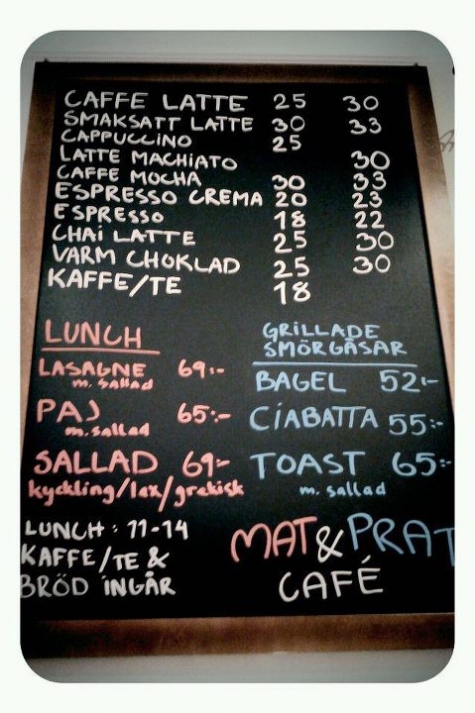 CAFFE LATTE 25 30
SMAKSATT LATTE 30 33
CAPPUCCINO 25
LATTE MACHIATO 30
CAFFE MOCHA 30 33
ESPRESSO CREMA 20 23
ESPRESSO 18 22
CHAI LATTE 25 30
VARM CHOKLAD 25 30
KAFFE/TE 18
LUNCH
LASAGNE 69:-
m. sallad
PAJ 65:-
m. sallad
SALLAD 69:-
kyckling/lax/grekisk
GRILLADE
SMÖRGÅSAR
BAGEL 52:-
CIABATTA 55:-
TOAST 65:-
m. sallad
LUNCH: 11-14
KAFFE/TE &
BRÖD INGÅR
MAT & PRAT
CAFÉ